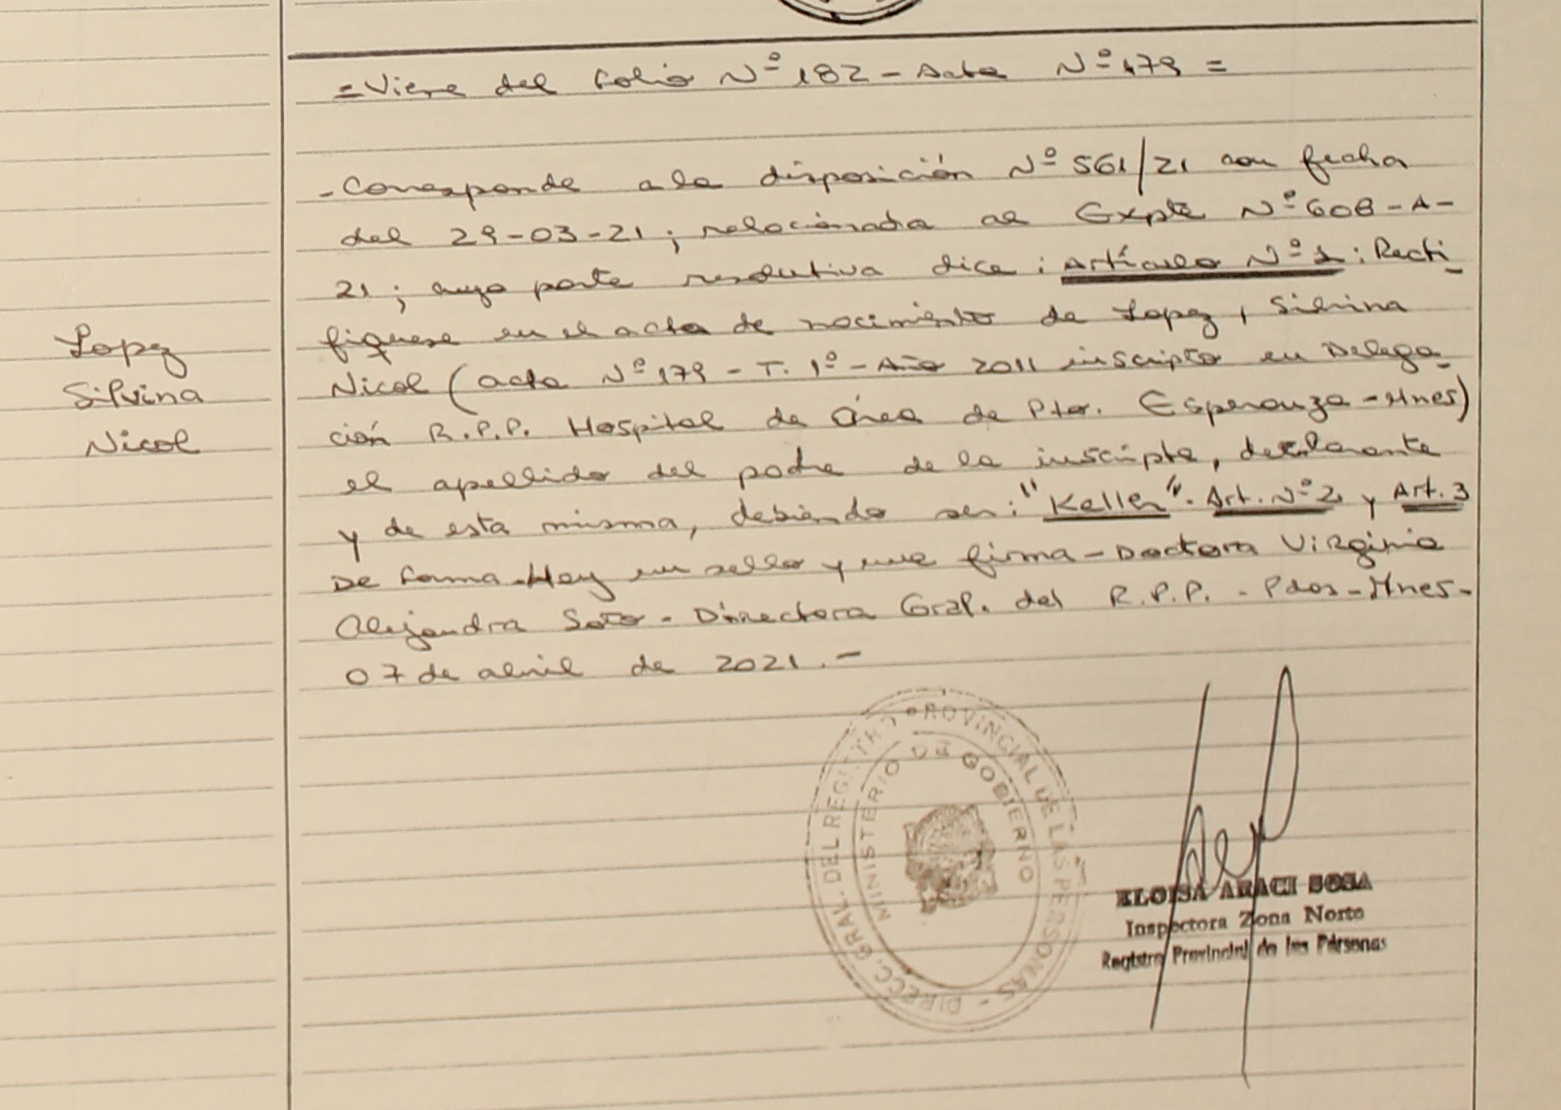 =Viene del Folio Nº 182 - Acta Nº 179 =
- Corresponde a la disposición Nº 561/21 con fecha
del 29-03-21; relacionada al Expte Nº 608-A-
21; cuya parte resolutiva dice: Artículo Nº 1: Recti_
fíquese en el acta de nacimiento de Lopez, Silvina
Nicol (acta Nº 179 - T. 1º - Año 2011 inscripta en Delega_
ción R.P.P. Hospital de Área de Pto. Esperanza - Mnes)
el apellido del padre de la inscripta, declarante
y de esta misma, debiendo ser: "Keller". Art. Nº 2 y Art. 3
De forma - Hay un sello y una firma - Doctora Virginia
Alejandra Soto - Directora Gral. del R.P.P. - Pdas - Mnes -
07 de abril de 2021. -
Lopez
Silvina
Nicol
DIRECC. GRAL. DEL REGISTRO PROVINCIAL DE LAS PERSONAS -
MINISTERIO DE GOBIERNO
ELOISA ARACI SOSA
Inspectora Zona Norte
Registro Provincial de las Personas